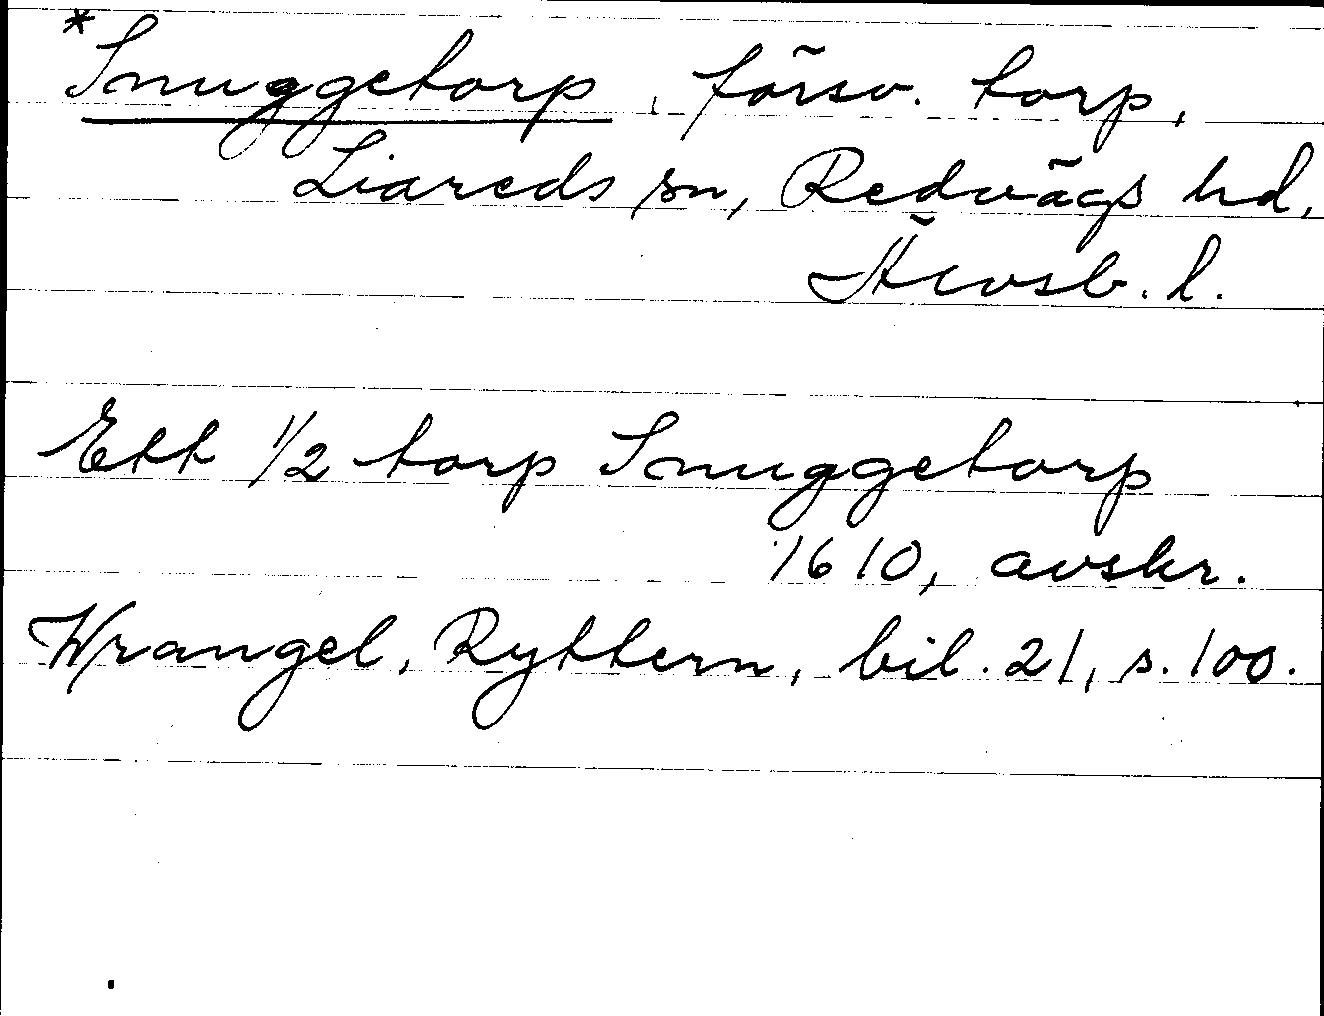 *Snuggetorp, försv. torp,
Liareds sn, Redvägs hd,
Älvsb. l.
Ett 1/2 torp Snuggetorp
1610, avskr.
Wrangel, Ryttern, bil. 21, s. 100.